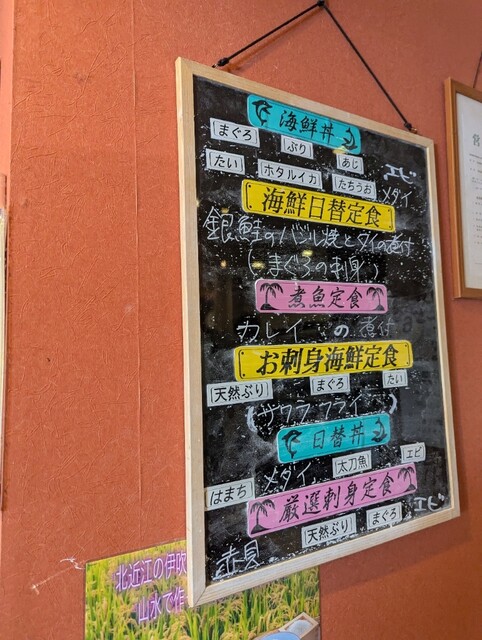 海鮮丼
まぐろ ぶり あじ エビ
たい ホタルイカ たちうお メダイ
海鮮日替定食
銀鮭のバジル焼とタイの煮付
(まぐろの刺身)
煮魚定食
カレイ の 煮付
お刺身海鮮定食
天然ぶり まぐろ たい
(サワラフライ)
日替丼
はまち メダイ 太刀魚 エビ
厳選刺身定食
赤貝 天然ぶり まぐろ エビ
北近江の伊吹
山水で作